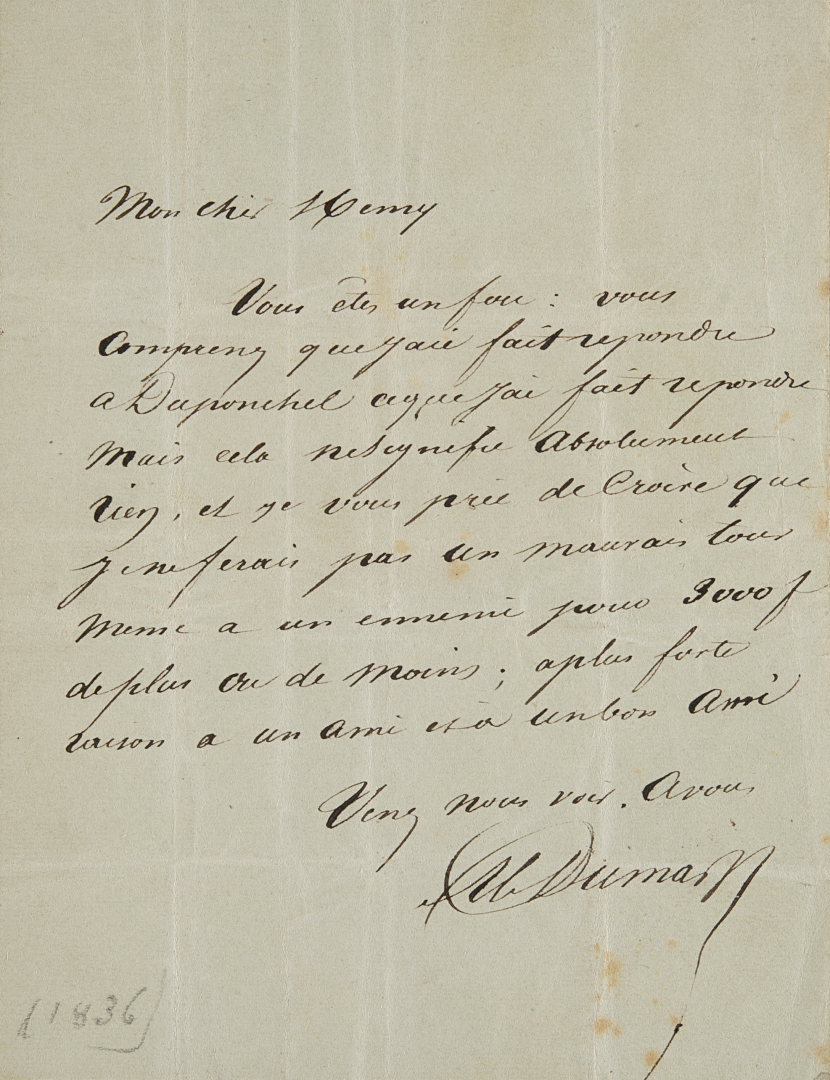 Mon cher Henry
Vous êtes un fou : vous
Comprenez que j'aie fait repondre
a Duponchel ce que j'ai fait repondre
Mais cela ne signifie Absolument
rien, et je vous prie de Croire que
je ne ferais pas un mauvais tour
meme a un ennemi pour 3000 f
de plus ou de moins ; a plus forte
raison a un ami et a un bon Ami
Venez nous voir. A vous
Alex Dumas
(1836)